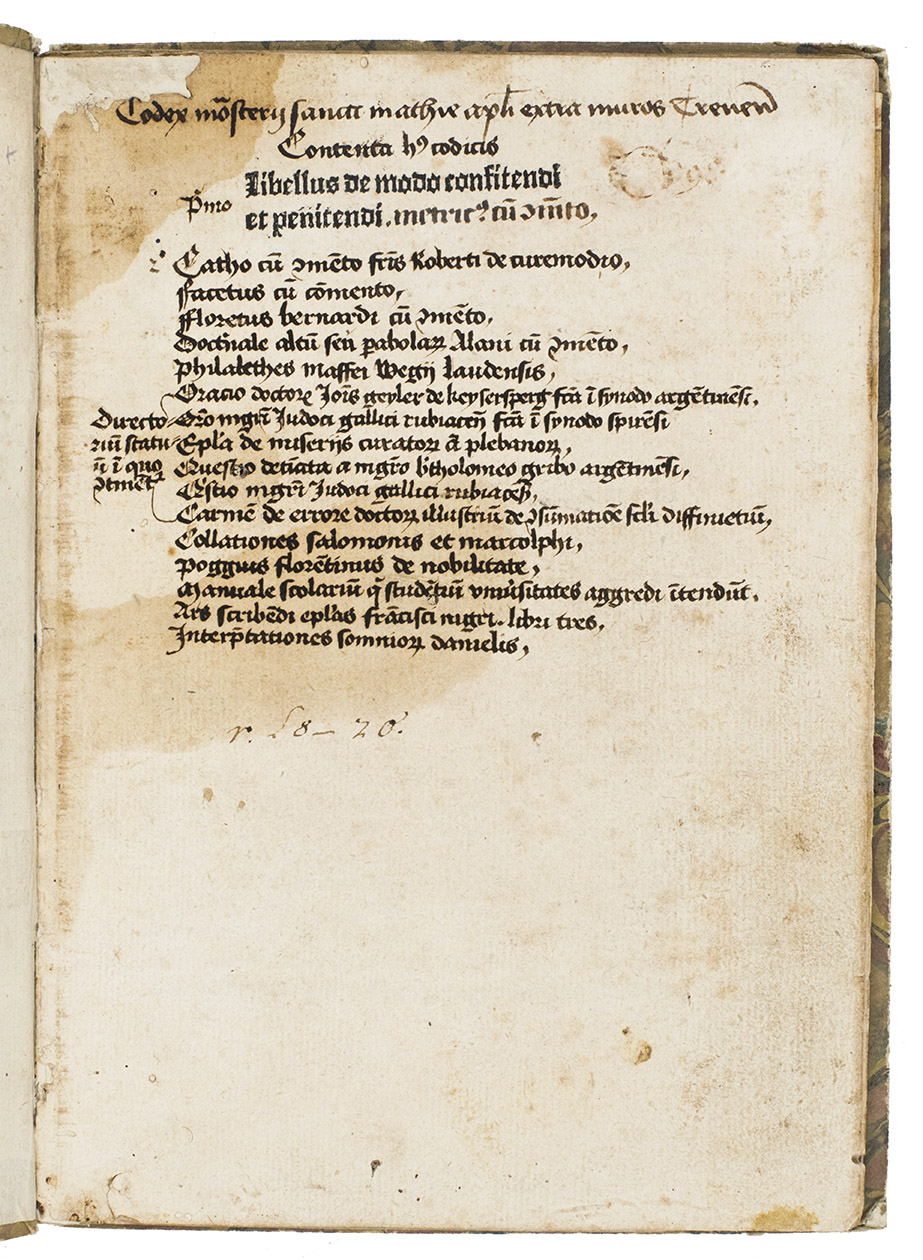 Codex mōsterij sancti mathie apłi extra muros Treueñ
Contenta hꝰ codicis
Libellus de modo confitendi
P̄mo et penitendi. metricꝰ cū ↄmēto,
2º Catho cū ↄmēto fr̄is Roberti de euremodio,
Facetus cū cōmento,
Floretus bernardi cū ↄmēto,
Doctⁱnale altū seu ꝑabolaꝝ Alani cū ↄmēto,
Philalethes maffei Wegij laudensis,
Oracio doctorꝭ Joīs geyler de keysersperg fcā ī synodo argētineñsi,
Directo Orō mgr̄i Judoci gallici rubiaceñ fcā ī synodo spirēsi
riū statu Epl̄a de miserijs curatorꝝ et plebanoꝝ,
ū ī quo Questio det̄iata a mgr̄o b̄tholomeo gribo argētinēsi,
ↄtinētꝭ Q̄stio mgr̄i Judoci gallici rubiaceñ,
Carmē de errore doctoꝝ illustriū de ↄsūmatiōe sc̄li diffinietiū,
Collationes Salomonis et marcolphi,
Poggius florētinus de nobilitate,
Manuale scolariū q̄ studētiū vniūsitates aggredi ītendūt.
Ars scribēdi epl̄as frācisci nigri. libri tres,
Interp̄tationes somnioꝝ danielis,